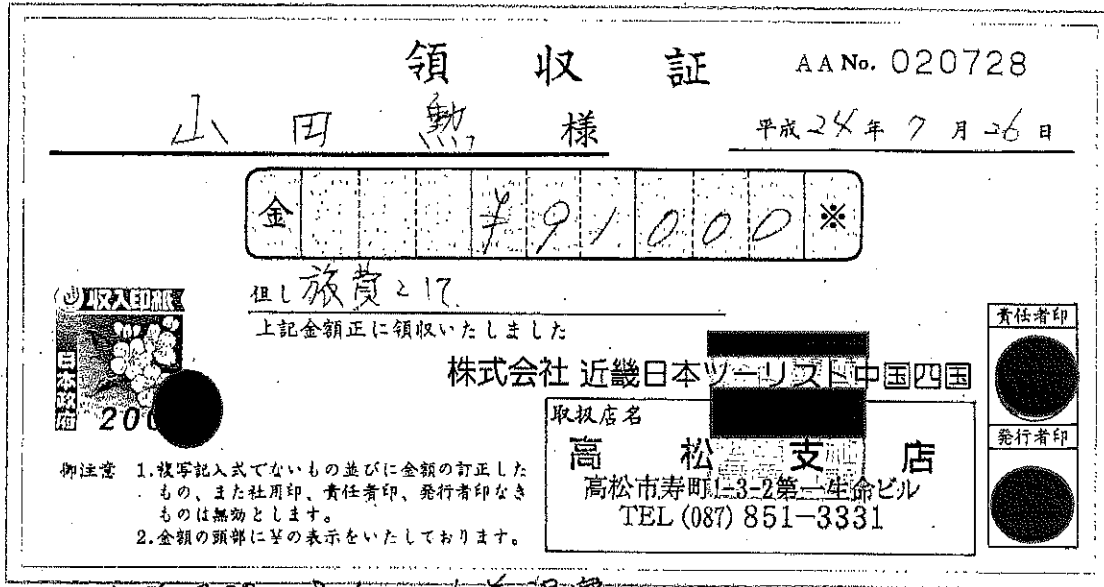 領収証
AA No. 020728
山田 勲 様
平成24年7月26日
金 ¥91000※
但し 旅費として
上記金額正に領収いたしました
収入印紙
日本政府
200
株式会社 近畿日本ツーリスト中国四国
取扱店名
高松支店
高松市寿町1-3-2第一生命ビル
TEL (087) 851-3331
責任者印
発行者印
御注意 1.複写記入式でないもの並びに金額の訂正した
もの、また社用印、責任者印、発行者印なき
ものは無効とします。
2.金額の頭部に¥の表示をいたしております。